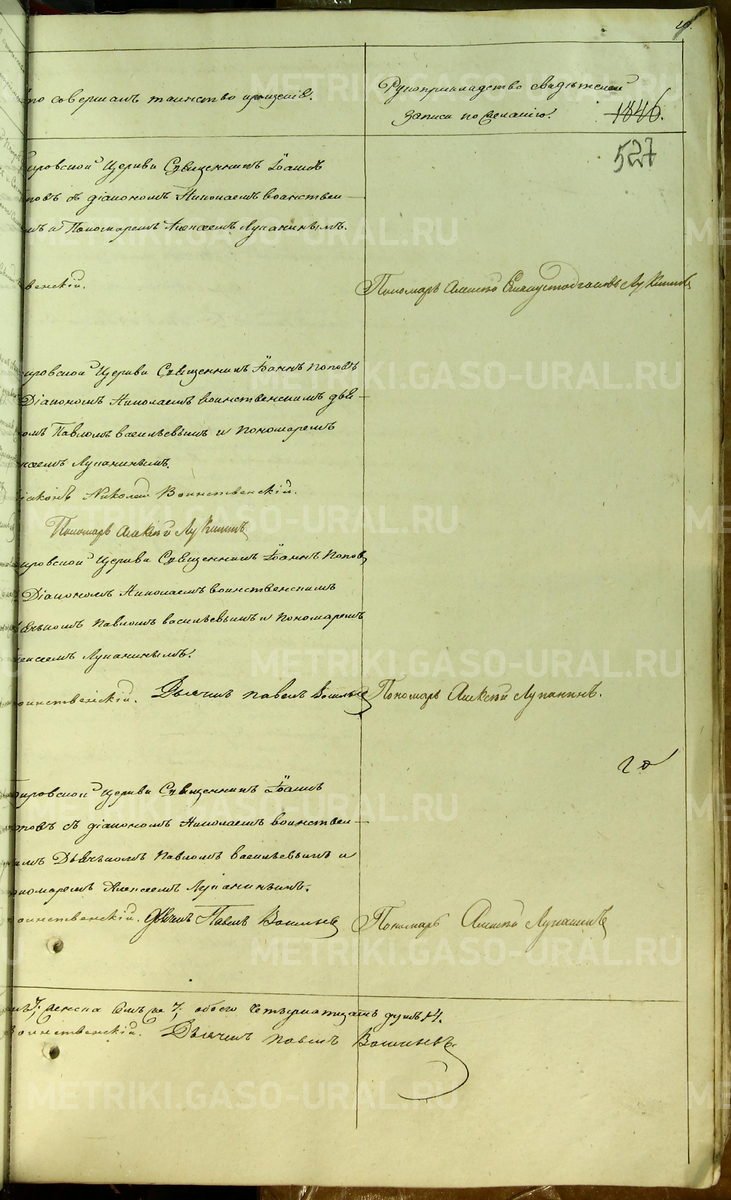 кто совершалъ таинство крещенія.
Рукоприкладство свидѣтелей
записи по желанію.
1846.
527
кировской Церкви Священникъ Іоаннъ
Поповъ съ діакономъ Николаемъ воинствен-
мъ и Пономаремъ Алексѣемъ Лупанинымъ.
венскій.
Пономарь Алексѣй
кировской Церкви Священникъ Іоаннъ Поповъ
Діакономъ Николаемъ воинственскимъ дья-
комъ Павломъ васильевымъ и пономаремъ
ксѣемъ Лупанинымъ.
діаконъ Николай Воинственскій.
Пономарь Алексѣй
кировской Церкви Священникъ Іоаннъ Поповъ
Діакономъ Николаемъ воинственскимъ
Павломъ васильевымъ и пономаремъ
лексѣемъ Лупанинымъ.
воинственскій. Дьячекъ павелъ
Пономарь Алексѣй Лупанинъ.
кировской Церкви Священникъ Іоаннъ
поповъ съ діакономъ Николаемъ воинствен-
кимъ Павломъ васильевымъ и
пономаремъ Алексѣемъ Лупанинымъ.
воинственскій. Дьячекъ Павелъ
Пономарь Алексѣй Лупанинъ
7, женска 7, обоего душъ 14.
воинственскій. Дьячекъ павелъ
METRIKI.GASO-URAL.RU